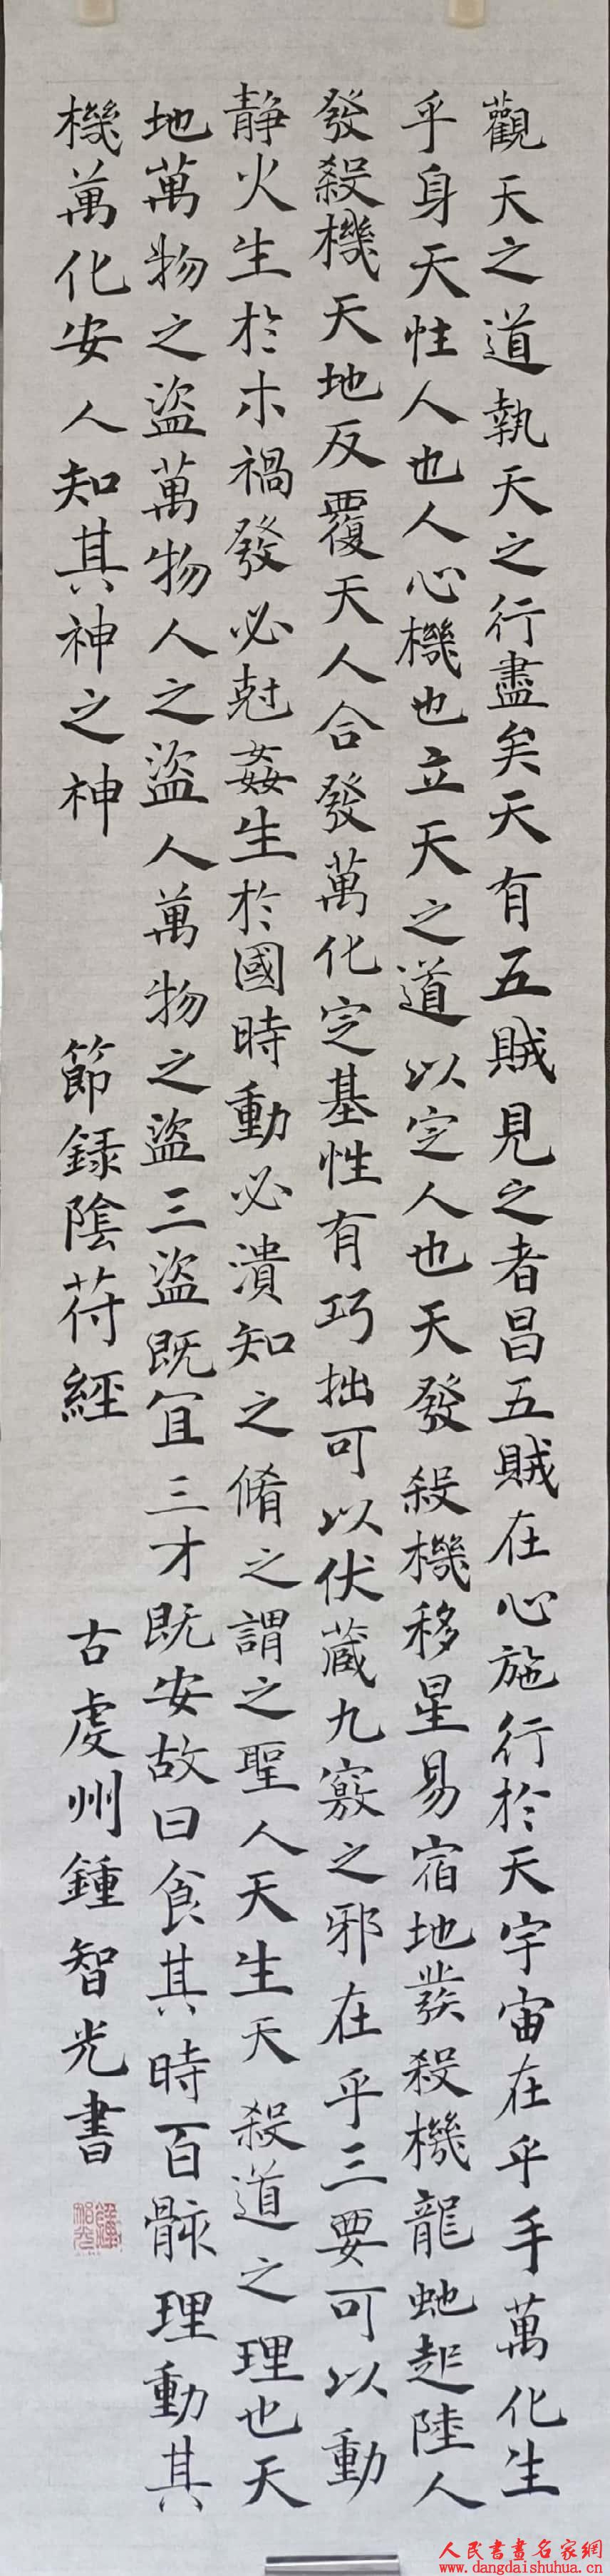 觀天之道執天之行盡矣天有五賊見之者昌五賊在心施行於天宇宙在乎手萬化生
乎身天性人也人心機也立天之道以定人也天發殺機移星易宿地發殺機龍虵起陸人
發殺機天地反覆天人合發萬化定基性有巧拙可以伏藏九竅之邪在乎三要可以動
静火生於木禍發必尅姦生於國時動必潰知之脩之謂之聖人天生天殺道之理也天
地萬物之盜萬物人之盜人萬物之盜三盜既宜三才既安故曰食其時百骸理動其
機萬化安人知其神之神
節録陰苻經
古虔州鍾智光書
人民書畫名家網
www.dangdaishuhua.cn